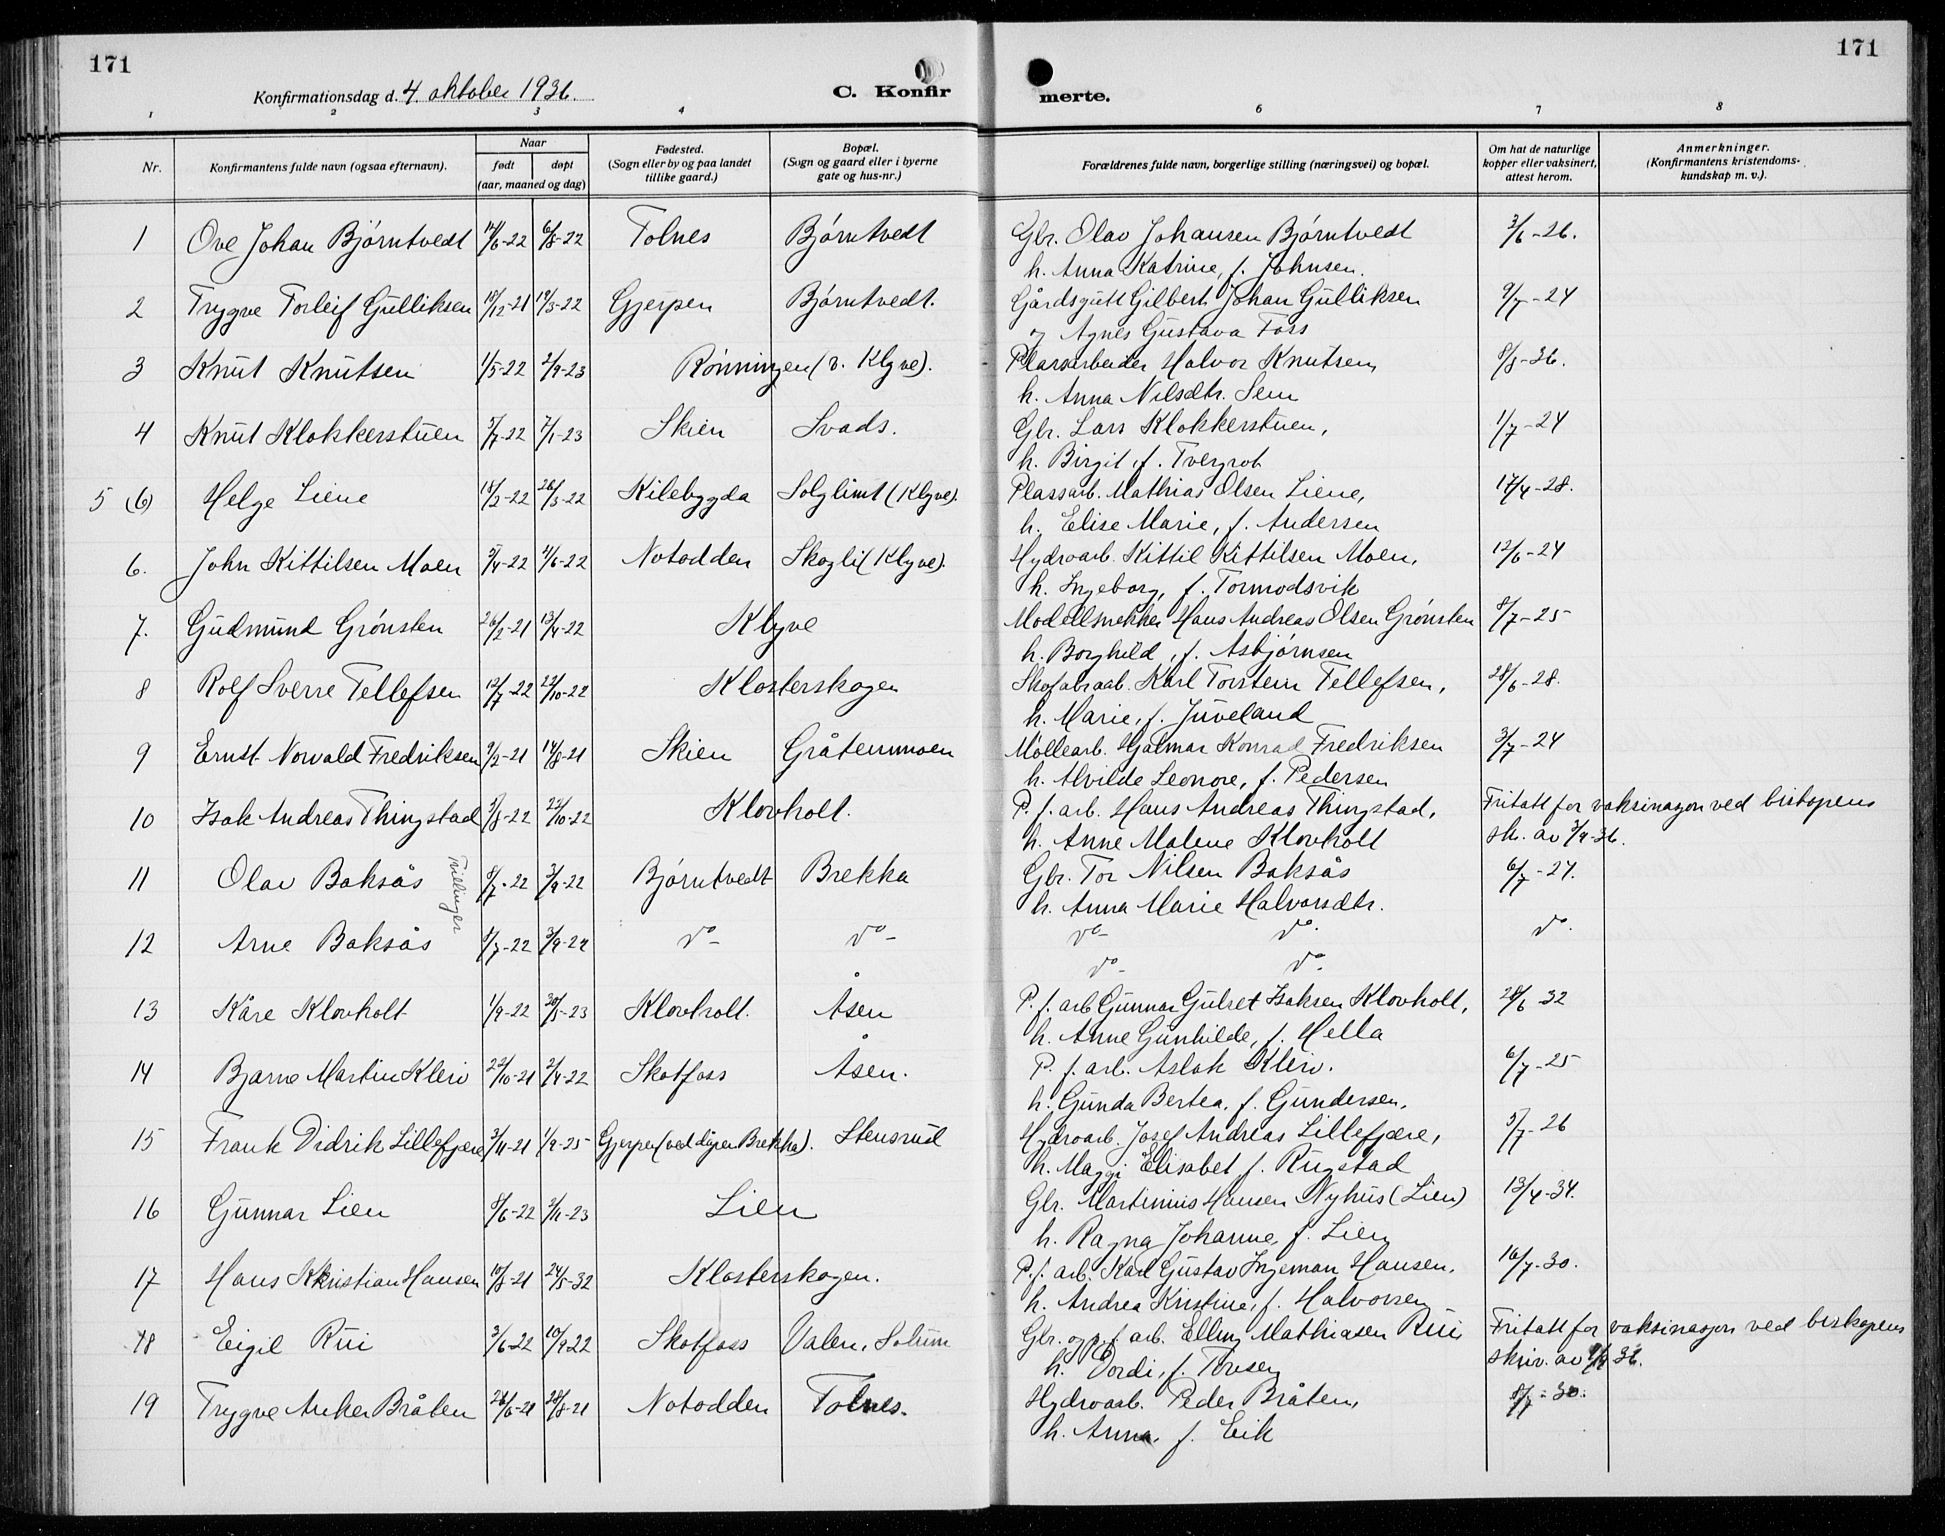 171
171
Konfirmationsdag d. 4. oktober 1936.
C. Konfirmerte.
1 2 3 4 6 7 8
Nr.
Konfirmantens fulde navn (ogsaa efternavn).
Naar
født
døpt
(aar, maaned og dag)
Fødested.
(Sogn eller by og paa landet
tillike gaard.)
Bopæl.
(Sogn og gaard eller i byerne
gate og hus-nr.)
Forældrenes fulde navn, borgerlige stilling (næringsvei) og bopæl.
Om hat de naturlige
kopper eller vaksinert,
attest herom.
Anmerkninger.
(Konfirmantens kristendoms-
kundskap m. v.).
1 Ove Johan Bjørntvedt 17/6-22 6/8-22 Tolnes Bjørntvedt Gbr. Olav Johansen Bjørntvedt 3/6-26.
h. Anna Katrine, f. Johnsen.
2 Trygve Torleif Gulliksen 10/12-21 19/3-22 Gjerpen Bjørntvedt. Gårdsgutt Gilbert Johan Gulliksen 9/7-24
og Agnes Gustava Foss
3 Knut Knutsen 1/5-22 2/9-23 Rønningen (v. Klyve). Plassarbeider Halvor Knutsen 8/8-36.
h. Anna Nilsdtr. Sem
4 Knut Klokkerstuen 5/7-22 7/1-23 Skien Svads. Gbr. Lars Klokkerstuen, 1/7-24
h. Birgit, f. Tvergrot
5 (6) Helge Liene 18/2-22 26/3-22 Kilebygda Solglimt (Klyve). Plassarb. Mathias Olsen Liene, 17/4-28.
h. Elise Marie, f. Andersen
6. John Kittilsen Moen 5/4-22 11/6-22 Notodden Skogli (Klyve). Hydroarb. Kittil Kittilsen Moen, 12/6-24
h. Ingeborg, f. Tormodsvik
7. Gudmund Grønsten 26/2-21 13/4-22 Klyve Modellsnekker Hans Andreas Olsen Grønsten 8/7-25
h. Borghild, f. Asbjørnsen
8 Rolf Sverre Tellefsen 12/7-22 22/10-22 Klosterskogen Skofabraab. Karl Torstein Tellefsen, 28/6-28.
h. Marie, f. Juveland
9 Ernst Norvald Fredriksen 9/2-21 14/8-21 Skien Gråtenmoen Møllearb. Hjalmar Konrad Fredriksen 3/7-24
h. Alvilde Leonore, f. Pedersen
10 Isak Andreas Thingstad 3/8-22 22/10-22 Klovholt. P. f. arb. Hans Andreas Thingstad, Fritatt for vaksinasjon ved biskopens
h. Anne Malene Klovholt sk. av 3/9-36.
11 Olav Baksås Tvillinger 8/7-22 3/9-22 Bjørntvedt Brekka Gbr. Tor Nilsen Baksås 6/7-27.
h. Anna Marie Halvorsdtr.
12 Arne Baksås 8/7-22 3/9-22 do- do- do- do. do.
do- do-
13 Kåre Klovholt 1/9-22 20/5-23 Klovholt. Åsen P. f. arb Gunnar Gulret Isaksen Klovholt, 28/6 32
h. Anne Gunhilde, f. Hella
14 Bjarne Martin Kleiv 23/10-21 2/4-22 Skotfoss Åsen. P. f. arb. Aslak Kleiv. 6/7-25
h. Gunda Bertea, f. Gundersen.
15 Frank Didrik Lillefjære 3/11-21 1/9-25 Gjerpen (ved digen Brekka). Stensrud Hydroarb. Josef Andreas Lillefjære, 5/7-26
h. Maggi Elisabet f. Rugstad
16 Gunnar Lien 8/6-22 3/11-23 Lien Gbr. Martinius Hansen Nyhus (Lien) 13/4-34.
h. Ragna Johanne, f. Lien
17 Hans Kristian Hansen 10/8-21 24/5-32 Klosterskogen. P. f. arb. Karl Gustav Ingeman Hansen, 16/7-30.
h. Andrea Kristine, f. Halvorsen
18 Eigil Rui 3/6-22 10/9 22 Skotfoss Valen, Solum Gbr. og p. f. arb. Elling Mathiasen Rui Fritatt for vaksinasjon ved biskopens
h. Dordi, f. Tovsen skriv. av 9/9 36.
19 Trygve Anker Bråten 26/6-21 28/8-21 Notodden Tolnes. Hydroarb. Peder Bråten, 8/7-30.
h. Anna, f. Eik